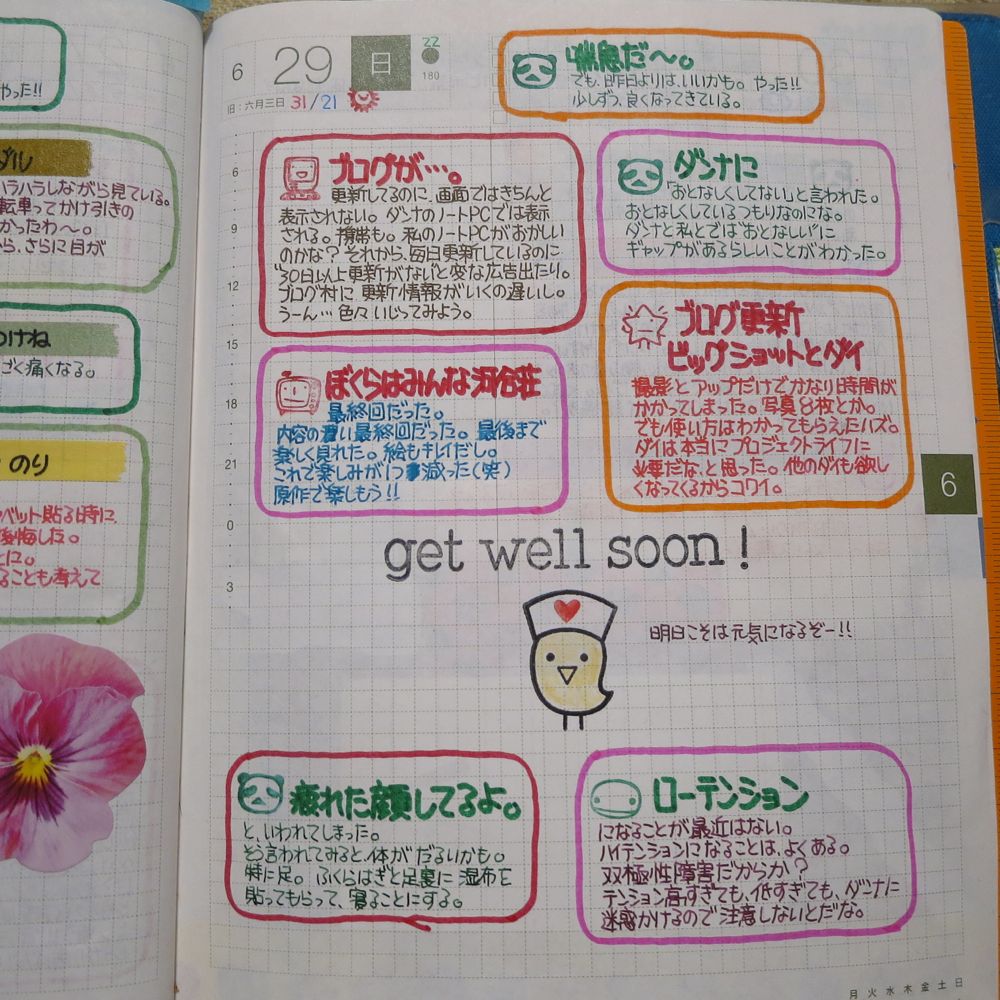 やった!!
ダル
ハラハラしながら見ている。
転車ってかけ引きの
かったわ〜。
から、さらに目が
つけね
ごく痛くなる。
のり
ベット貼る時に、
後悔した。
とに。
ることも考えて
6 29 日 22
180
旧:六月三日 31/21
喘息だ〜。
でも、昨日よりは、いいかも。やった!!
少しずつ、良くなってきている。
ブログが…。
更新してるのに、画面ではきちんと
表示されない。ダンナのノートPCでは表示
される。携帯も。私のノートPCがおかしい
のかな?それから、毎日更新しているのに
"30日以上更新がない"と変な広告出たり。
ブログ村に更新情報がいくの遅いし。
うーん…色々いじってみよう。
ダンナに
「おとなしくしてない」と言われた。
おとなしくしているつもりなのにな。
ダンナと私とでは"おとなしい"に
ギャップがあるらしいことがわかった。
ぼくらはみんな河合荘
最終回だった。
内容の濃い最終回だった。最後まで
楽しく見れた。絵もキレイだし。
これで楽しみが1つ減った(笑)
原作で楽しもう!!
ブログ更新
ビッグショットとダイ
撮影とアップだけでかなり時間が
かかってしまった。写真8枚とか。
でも使い方はわかってもらえたハズ。
ダイは本当にプロジェクトライフに
必要だな、と思った。他のダイも欲し
くなってくるからコワイ。
6
9
12
15
18
21
0
3
6
get well soon!
明日こそは元気になるぞー!!
疲れた顔してるよ。
と、いわれてしまった。
そう言われてみると、体がだるいかも。
特に足。ふくらはぎと足裏に湿布を
貼ってもらって、寝ることにする。
ローテンション
になることが最近はない。
ハイテンションになることは、よくある。
双極性障害だからか?
テンション高すぎても、低すぎても、ダンナに
迷惑かけるので注意しないとだな。
月 火 水 木 金 土 日